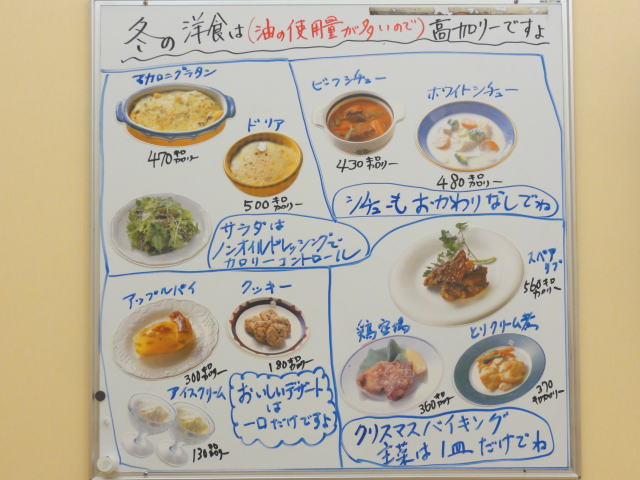 冬の洋食は(油の使用量が多いので)高カロリーですよ
マカロニグラタン
470キロカロリー
ドリア
500キロカロリー
サラダは
ノンオイルドレッシングで
カロリーコントロール
ビーフシチュー
430キロカロリー
ホワイトシチュー
480キロカロリー
シチューもおかわりなしでね
アップルパイ
300キロカロリー
クッキー
180キロカロリー
アイスクリーム
130キロカロリー
おいしいデザート
は
一口だけですよ
スペア
リブ
560キロカロリー
鶏空揚
360キロカロリー
とりクリーム煮
370
キロカロリー
クリスマスバイキング
主菜は1皿だけでね